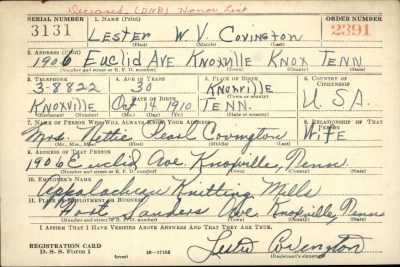 Deceased (DNB) Honor List
SERIAL NUMBER 1. NAME (Print) ORDER NUMBER
3131 LESTER W. V. COVINGTON 2391
(First) (Middle) (Last)
2. ADDRESS (Print)
1906 Euclid Ave Knoxville Knox Tenn
(Number and street or R. F. D. number) (Town) (County) (State)
3. TELEPHONE 4. AGE IN YEARS 5. PLACE OF BIRTH 6. COUNTRY OF CITIZENSHIP
3-8822 30 Knoxville
DATE OF BIRTH (Town or county)
Knoxville Oct 19 1910 TENN. U.S.A.
(Exchange) (Mo.) (Day) (Yr.) (State or country)
7. NAME OF PERSON WHO WILL ALWAYS KNOW YOUR ADDRESS 8. RELATIONSHIP OF THAT PERSON
Mrs. Nettie Pearl Covington Wife
(Mr., Mrs., Miss) (First) (Middle) (Last)
9. ADDRESS OF THAT PERSON
1906 Euclid Ave. Knoxville, Tenn.
(Number and street or R. F. D. number) (Town) (County) (State)
10. EMPLOYER'S NAME
Appalachian Knitting Mills
11. PLACE OF EMPLOYMENT OR BUSINESS
Sanders Ave Knoxville, Tenn
(Number and street or R. F. D. number) (Town) (County) (State)
I AFFIRM THAT I HAVE VERIFIED ABOVE ANSWERS AND THAT THEY ARE TRUE.
REGISTRATION CARD
D. S. S. Form 1 (over) 16—17105 Lester Covington
(Registrant's signature)